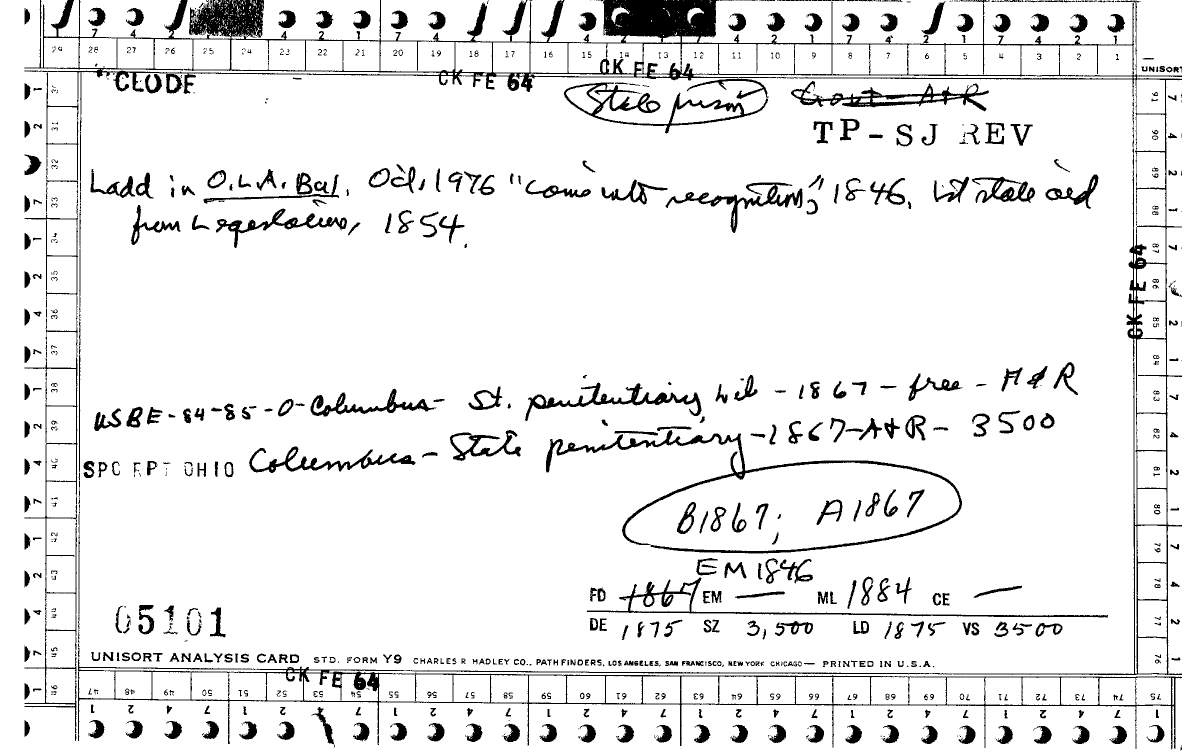 7 4 2 4 2 1 7 4 2 1 7 4 2 1 7 4 2 1 7 4 2 1
29 28 27 26 25 24 23 22 21 20 19 18 17 16 15 14 13 12 11 10 9 8 7 6 5 4 3 2 1
UNISORT
CLODE CK FE 64 CK FE 64
State prison Govt - A+R
TP-SJ REV
Ladd in O.L.A. Bul. Oct, 1976 "Come into recognition," 1846. 1st state aid
from Legislature, 1854.
CK FE 64
USBE-84-85-O-Columbus- St. penitentiary Lib - 1867 - free - A & R
SPC RPT OHIO Columbus - State penitentiary - 1867 - A+R - 3500
B1867; A1867
EM 1846
FD 1867 EM — ML 1884 CE —
DE 1875 SZ 3,500 LD 1875 VS 3500
05101
UNISORT ANALYSIS CARD STD. FORM Y9 CHARLES R HADLEY CO., PATHFINDERS, LOS ANGELES, SAN FRANCISCO, NEW YORK CHICAGO — PRINTED IN U.S.A.
CK FE 64
47 48 49 50 51 52 53 54 55 56 57 58 59 60 61 62 63 64 65 66 67 68 69 70 71 72 73 74 75